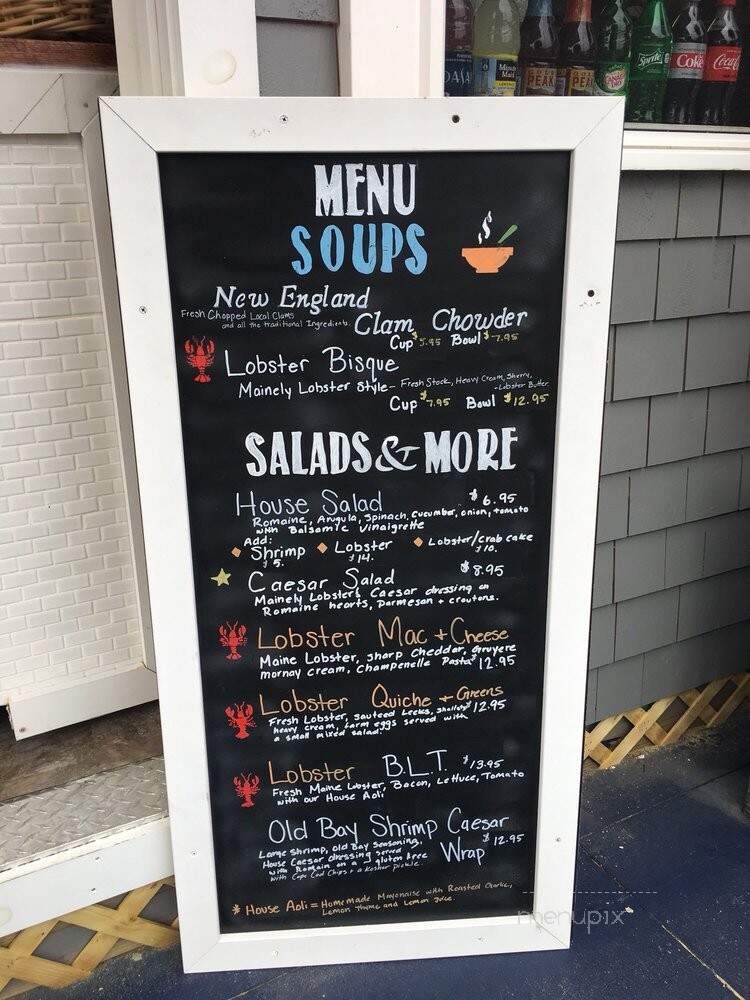 MENU
SOUPS
New England
Fresh Chopped Local Clams
and all the traditional Ingredients.
Clam Chowder
Cup $5.95 Bowl $7.95
Lobster Bisque
Mainely Lobster Style - Fresh Stock, Heavy Cream, Sherry,
- Lobster Butter
Cup $7.95 Bowl $12.95
SALADS & MORE
House Salad $6.95
Romaine, Arugula, Spinach, Cucumber, onion, tomato
with Balsamic Vinaigrette
Add:
Shrimp Lobster Lobster/crab cake
$5. $14. $10.
Caesar Salad $8.95
Mainely Lobsters Caesar dressing on
Romaine hearts, Parmesan + croutons.
Lobster Mac + Cheese
Maine Lobster, sharp cheddar, gruyere
mornay cream, Champenelle Pasta $12.95
Lobster Quiche + Greens
Fresh Lobster, sauteed Leeks, shallots $12.95
heavy cream, farm eggs served with
a small mixed salad.
Lobster B.L.T. $13.95
Fresh Maine Lobster, Bacon, Lettuce, Tomato
with our House Aoli
Old Bay Shrimp Caesar
Large Shrimp, old Bay seasoning, $12.95
House Caesar dressing served Wrap
with Romain on a gluten free
with Cape Cod Chips + a Kosher pickle.
* House Aoli = Homemade Mayonaise with Roasted Garlic,
Lemon Thyme and Lemon Juice.
menupix
Sprite
Coke
Coca-Cola
Minute
Maid
PEAK
PEAK